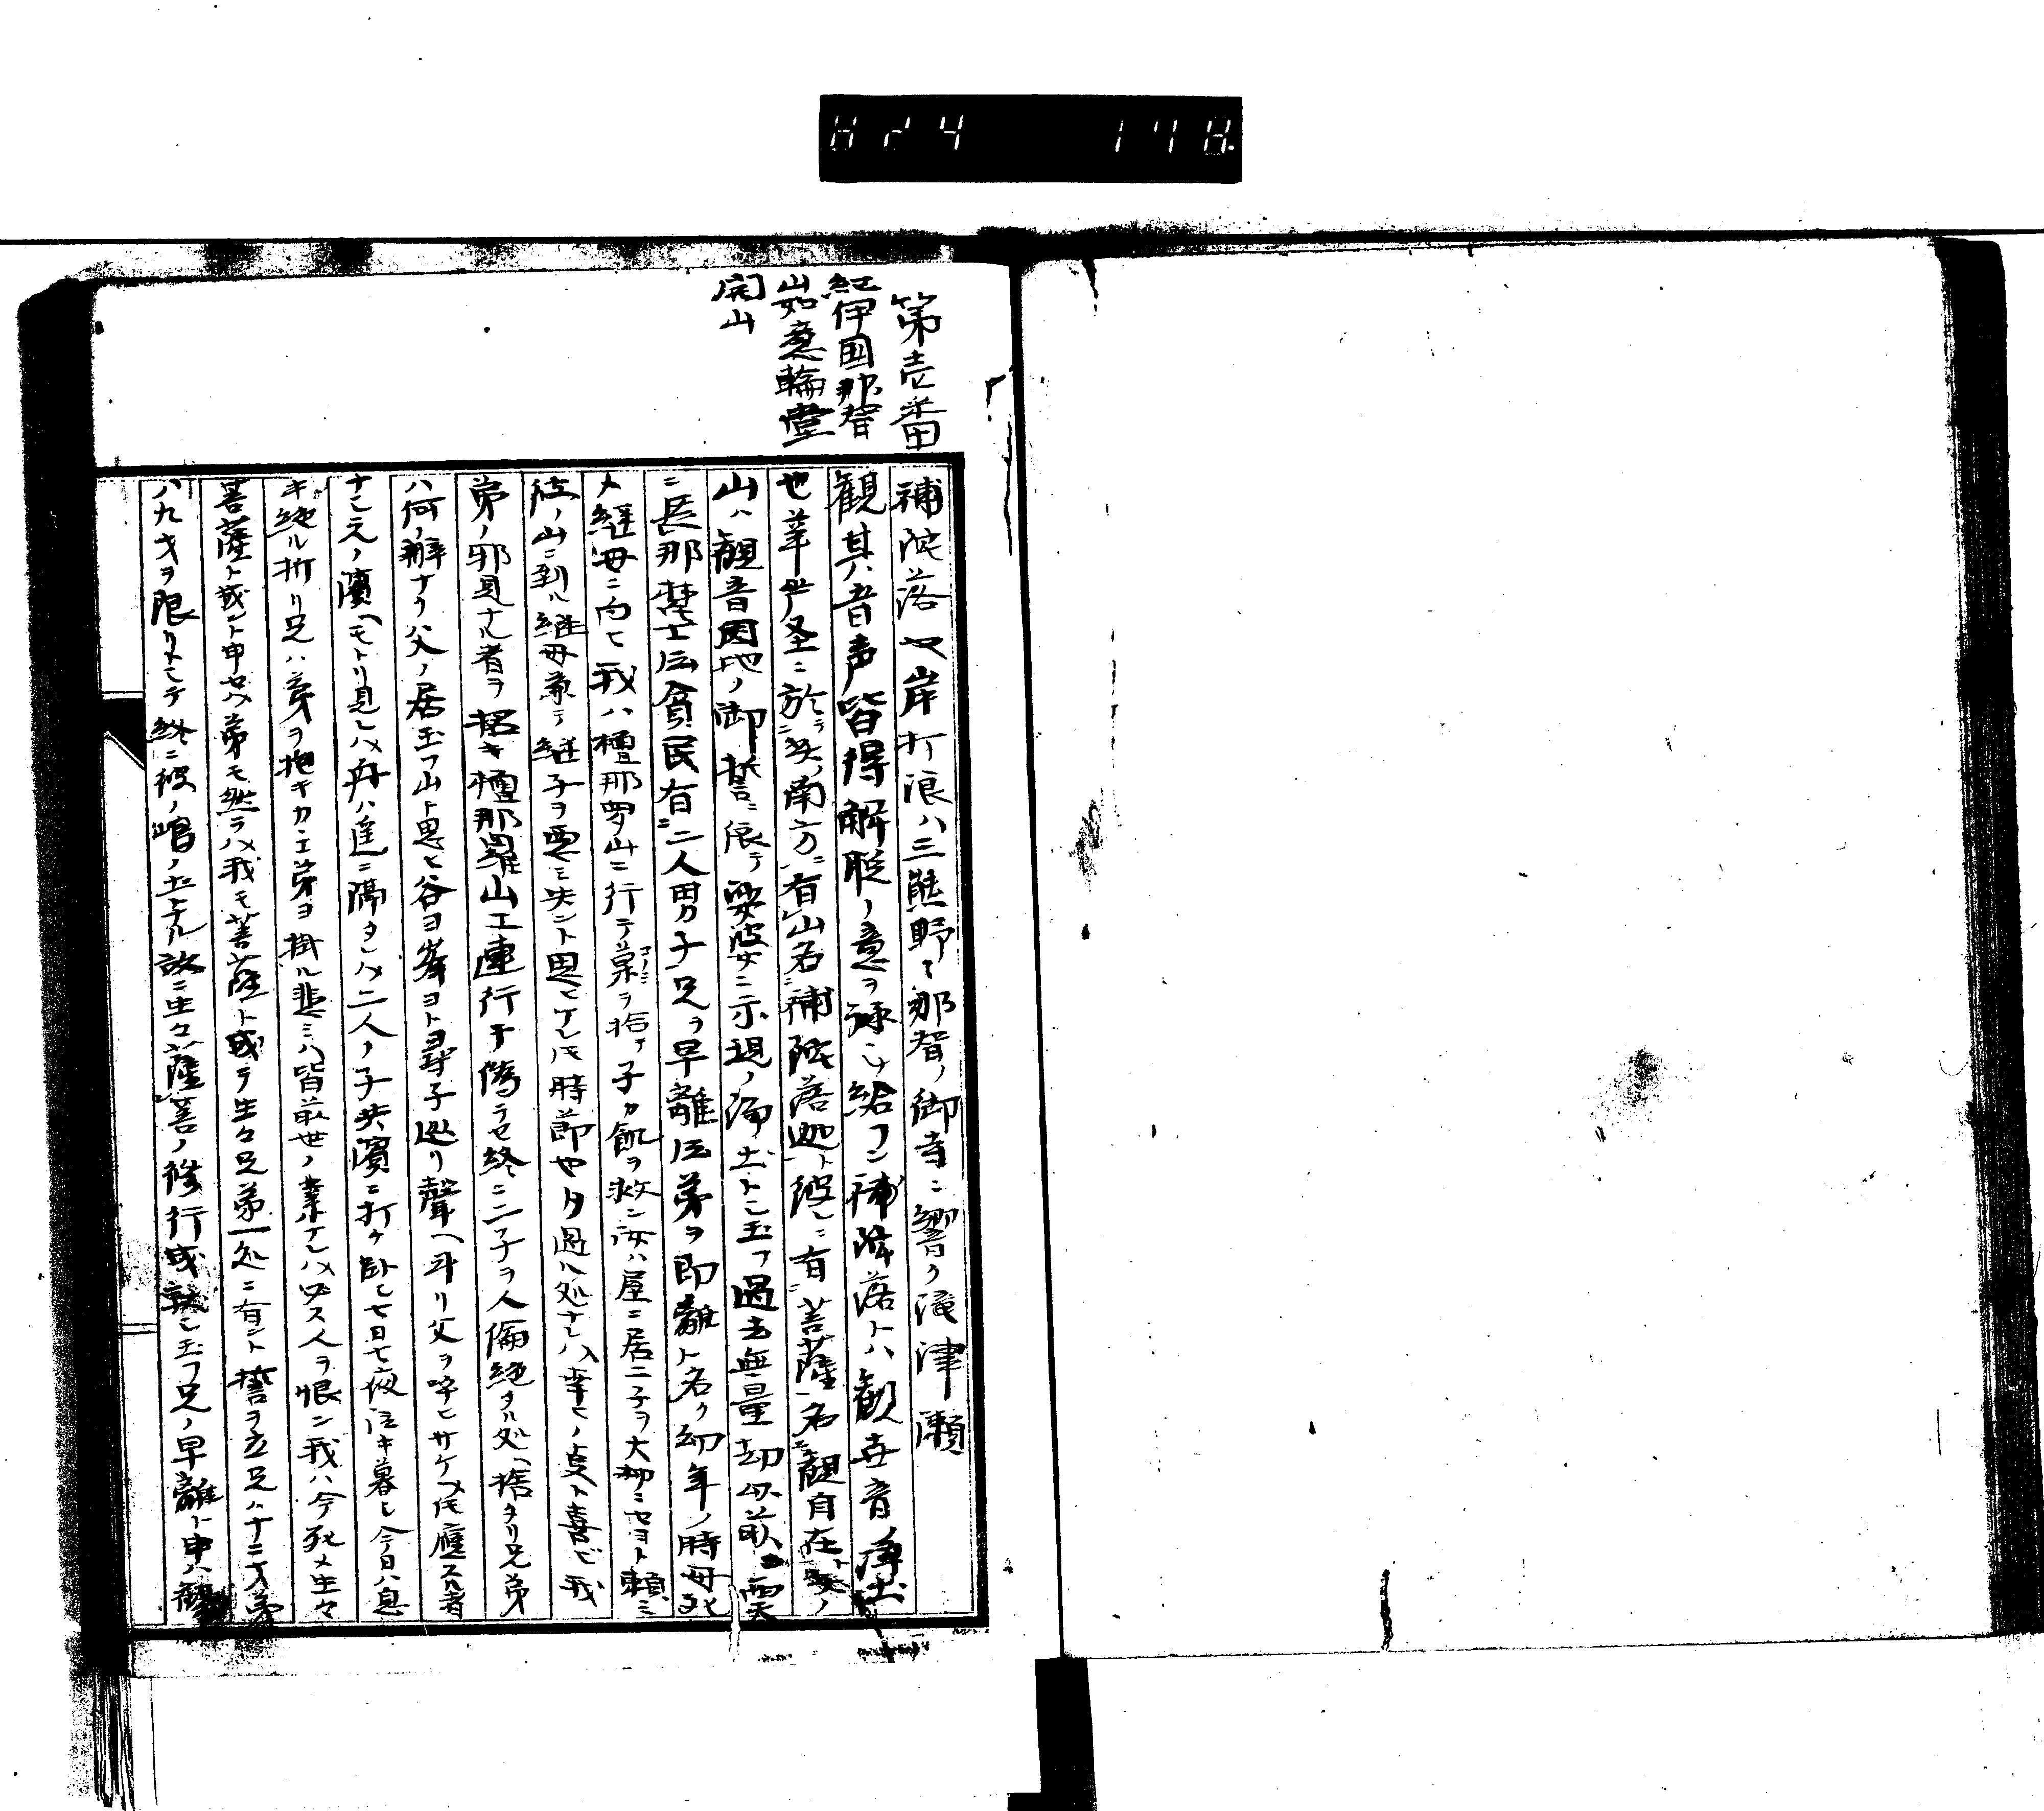 第壱番
紀伊国那智
山如意輪堂
開山
補陀落ヤ岸打浪ハ三熊野ノ那智ノ御寺ニ響ク滝津瀬
観其音声皆得解脱ノ意ヲ詠シ給フ補陀落トハ観世音ノ浄土
也華严圣ニ於テ此ノ南方ニ有山名補陀落迦ト彼ニ有菩薩名観自在
山ハ観音因地ノ御誓ニ依テ娑婆ニ示現ノ浄土トシ玉フ過去無量劫以前
ニ長那梵士云貧民有二人男子兄ヲ早離云弟ヲ即離ト名ク幼年ノ時母死
メ継母ニ向ヒ我ハ檀那罗山ニ行テ菓ヲ拾テ子カ飢ヲ救ン汝ハ屋ニ居二子ヲ大切ニセヨト頼ミ
彼ノ山ニ到ル継母兼テ継子ヲ悪ミ失ント思ヒケレ𪜈時節ヤタ過ル処ナレハ幸ヒノ支ト喜ヒ我
弟ノ邪見ナル者ヲ招キ檀那羅山エ連行テ偽テセ終ニ二子ヲ人倫絶タル処ヘ捨タリ兄弟
ハ何ノ辨ナク父ノ居玉フ山ト思ヒ谷ヨ峯ヨト尋子巡リ聲ヘ斗リ父ヲ呼ヒサケヘ𪜈應スル者
ナシ元ノ濱ヘモトリ見レハ舟ハ遥ニ隔タレハ二人ノ子共濱ニ打ケ臥シ七日七夜泣キ暮シ今日ハ息
キ絶ル折リ兄ハ弟ヲ抱キカヱ弟ヨ掛ル悲ミハ皆前世ノ業ナレハ必ス人ヲ恨ン我ハ今死メ生々
菩薩ト成ント申セハ弟モ然ラハ我モ菩薩ト成テ生々兄弟一処ニ有ント誓ヲ立兄ハ十二才弟
ハ九才ヲ限リトシテ終ニ彼ノ嶋ノ土トナル故ニ生々菩薩ノ修行成就シ玉フ兄ノ早離ト申ハ